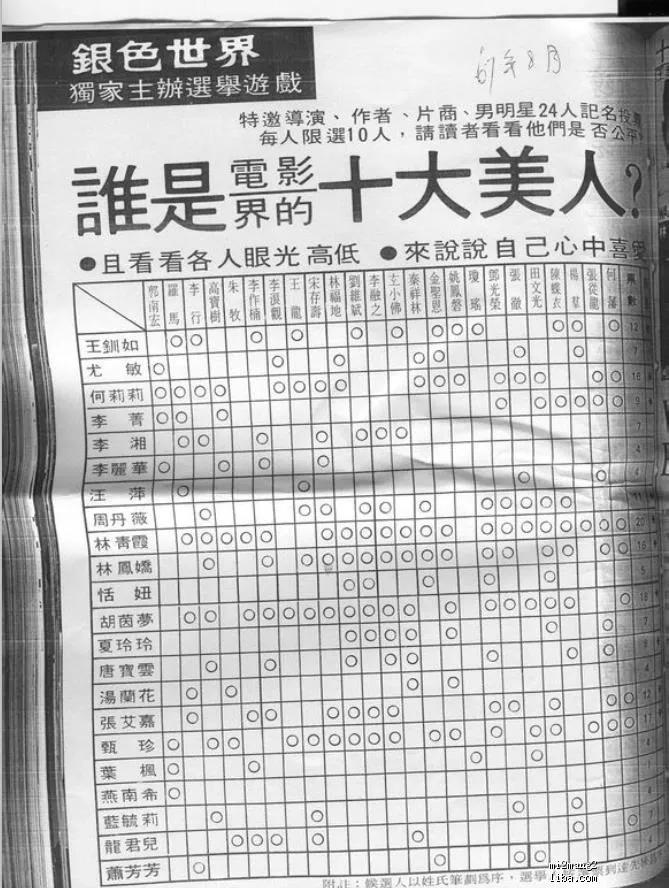 銀色世界
獨家主辦選舉遊戲
年8月
特邀導演、作者、片商、男明星24人記名投
每人限選10人，請讀者看看他們是否公平
誰是電影界的十大美人?
●且看看各人眼光高低 ●來說說自己心中喜愛
郭南宏 羅馬 李行 高寶樹 朱牧 李作楠 王龍 宋存壽 林福地 劉維斌 李融之 秦祥林 金聖恩 姚鳳磐 瓊瑤 鄧光榮 張徹 田文光 陳蝶衣 楊羣 張從龍 何藩 票數
王釧如 12
尤敏 7
何莉莉 16
李菁 9
李湘 7
李麗華 4
汪萍 4
周丹薇 11
林青霞 20
林鳳嬌 16
恬妞 5
胡茵夢 18
夏玲玲
唐寶雲
湯蘭花
張艾嘉
甄珍
葉楓
燕南希
藍毓莉
龍君兒
蕭芳芳
附註：候選人以姓氏筆劃為序，選舉
mi2maue2
liba.com